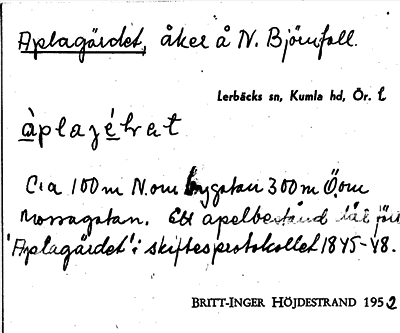 Aplagärdet, åker å N. Björnfall.
Lerbäcks sn, Kumla hd, Ör. l
C:a 100 m N.om bygatan 300 m Ö.om
mossagatan. Ett apelbestånd
'Aplagärdet' i skiftesprotokollet 1845-48.
BRITT-INGER HÖJDESTRAND 1952